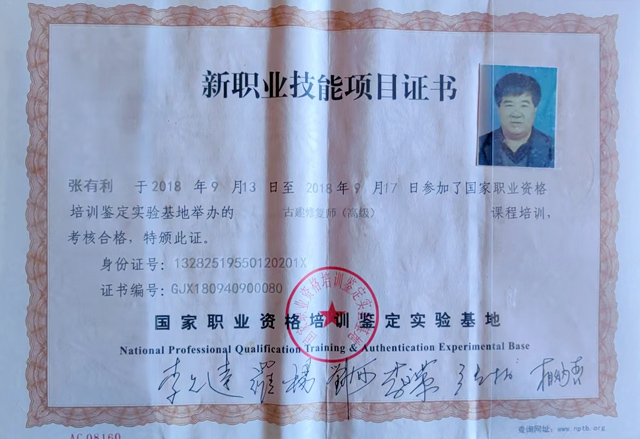 新职业技能项目证书
张有利 于2018 年9 月13 日至 2018 年9 月17 日参加了国家职业资格
培训鉴定实验基地举办的 古建修复师（高级） 课程培训，
考核合格，特颁此证。
身份证号：13282519550120201X
证书编号：GJX180940900080
国家职业资格培训鉴定实验基地
National Professional Qualification Training & Authentication Experimental Base
AC 08160
查询网址：www.npth.org